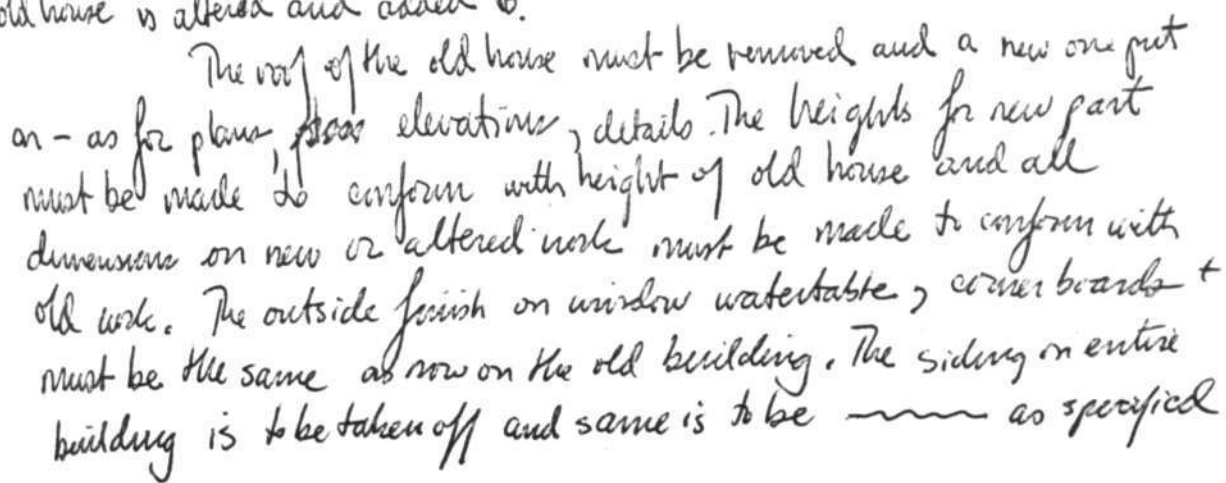 old house is altered and added to.
The roof of the old house must be removed and a new one put
on - as for plans, elevations, details. The heights for new part
must be made to conform with height of old house and all
dimensions on new or altered work must be made to conform with
old work. The outside finish on window watertable, corner boards +
must be the same as now on the old building. The siding on entire
building is to be taken off and same is to be as specified